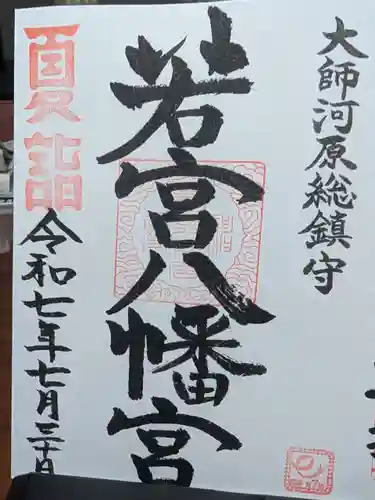 大師河原総鎮守
若宮八幡宮
夏詣
令和七年七月三十日